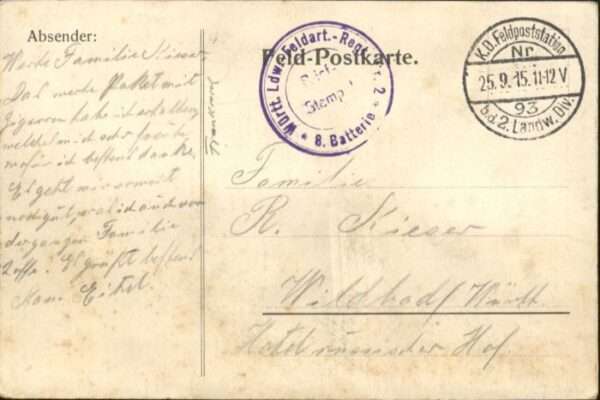 Absender:
Werte Familie Kieser
Das werte Paket mit
Zigarren habe ich erhalten
welches mich sehr freute
wofür ich bestens danke.
Es geht mir soweit
noch gut, was ich auch von
der ganzen Familie
hoffe. Es grüßt bestens
Eitel.
Feld-Postkarte.
Württ. Ldw. Feldart.-Regt. Nr. 2
Brief-
Stempel
* 8. Batterie *
K.D. Feldpoststation
Nr.
25.9.15.11-12V
93
b.d. 2. Landw. Div.
Familie
R. Kieser
Wildbad/Württ.
Hotel russischer Hof.